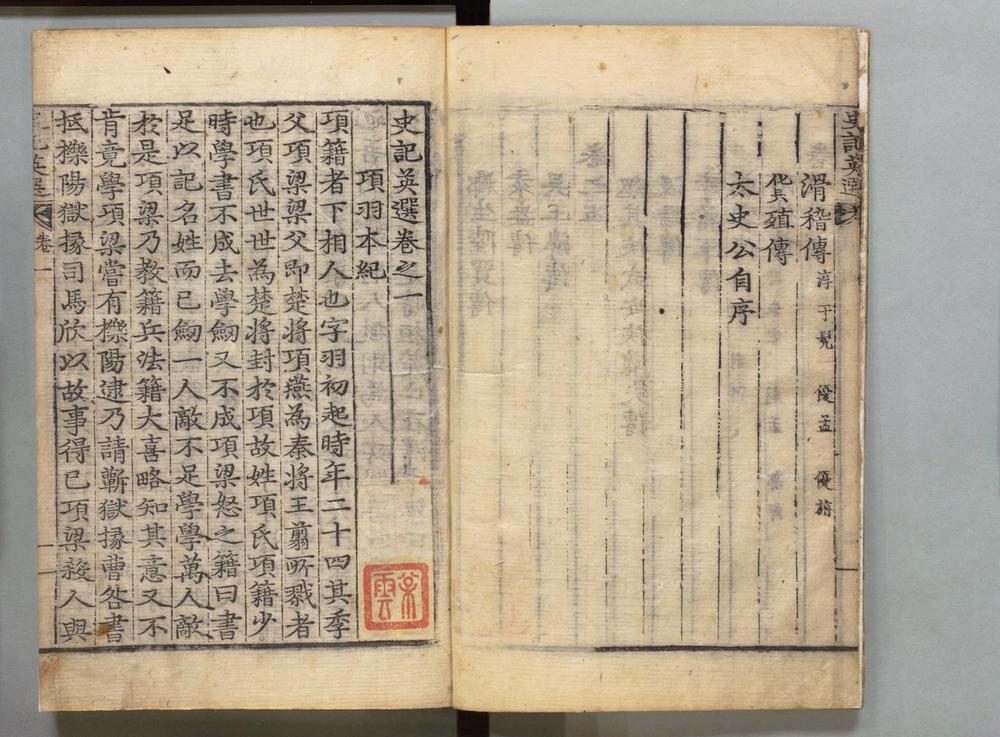 滑稽傳 淳于髡 優孟 優旃
貨殖傳
太史公自序
史記英選卷之一
項羽本紀
項籍者下相人也字羽初起時年二十四其季
父項梁梁父即楚將項燕為秦將王翦所戮者
也項氏世世為楚將封於項故姓項氏項籍少
時學書不成去學劒又不成項梁怒之籍曰書
足以記名姓而已劒一人敵不足學學萬人敵
於是項梁乃教籍兵法籍大喜略知其意又不
肯竟學項梁嘗有櫟陽逮乃請蘄獄掾曹咎書
抵櫟陽獄掾司馬欣以故事得已項梁殺人與
卷一